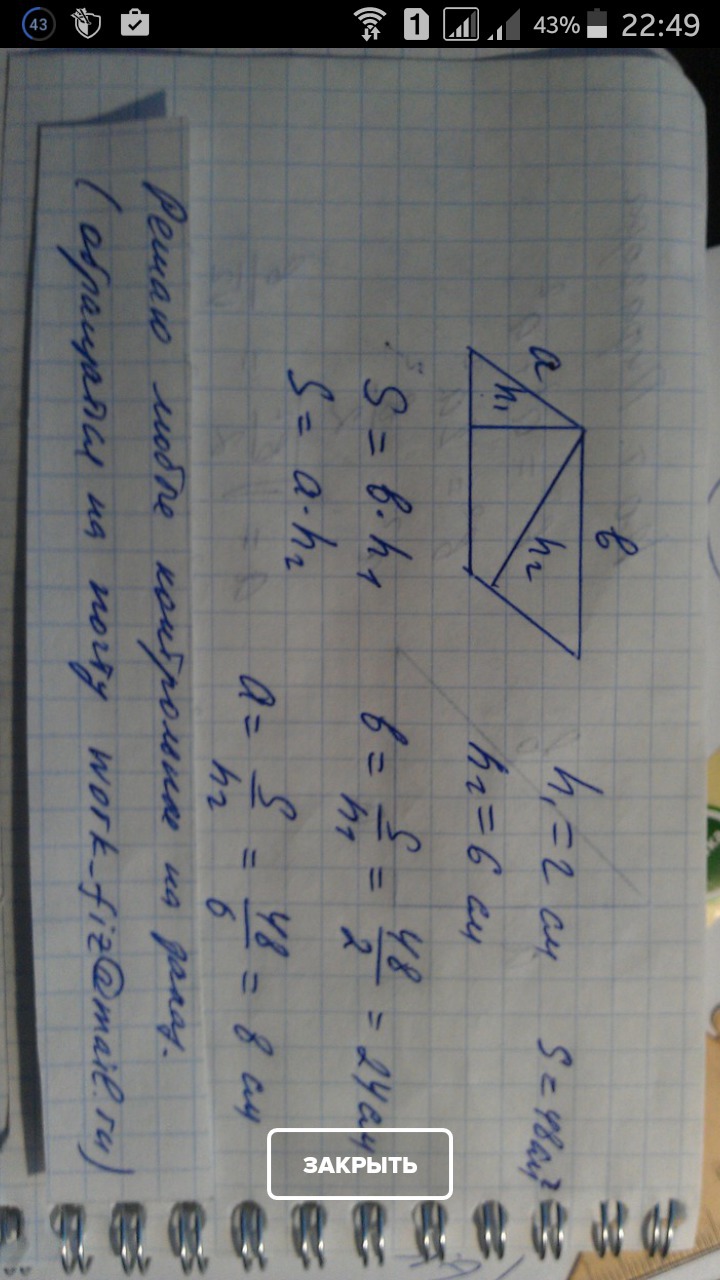 43
1
43%
22:49
a
b
h₁
h₂
h₁ = 2 см
S = 48 см²
h₂ = 6 см
S = b · h₁
b = S/h₁ = 48/2 = 24 см
S = a · h₂
a = S/h₂ = 48/6 = 8 см
Решаю любые контрольные на заказ.
(обращаться на почту work_fiz@mail.ru)
ЗАКРЫТЬ